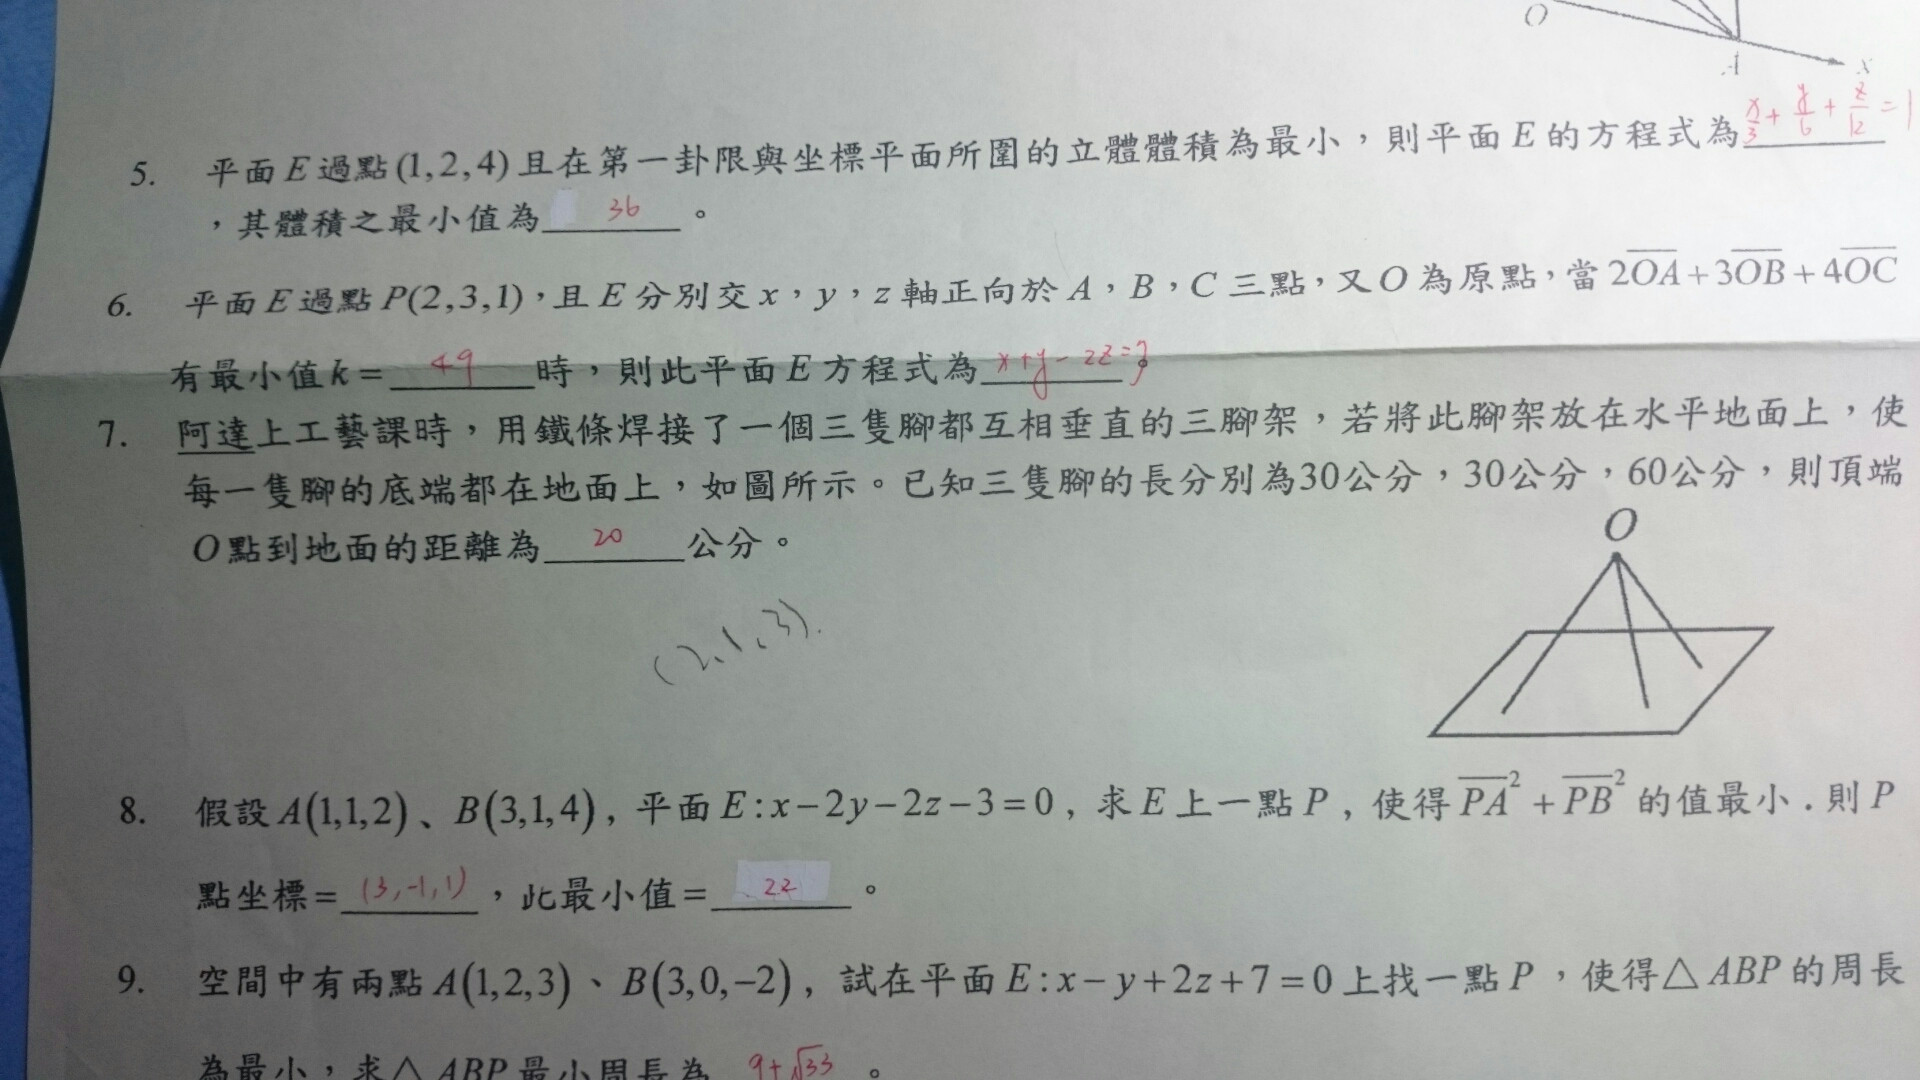 O
A
x
5. 平面E過點(1,2,4)且在第一卦限與坐標平面所圍的立體體積為最小,則平面E的方程式為 x/3 + y/6 + z/12 = 1
,其體積之最小值為 36 。
6. 平面E過點P(2,3,1),且E分別交x,y,z軸正向於A,B,C三點,又O為原點,當 2\overline{OA}+3\overline{OB}+4\overline{OC}
有最小值k= 49 時,則此平面E方程式為 x+y-2z=7 。
7. 阿達上工藝課時,用鐵條焊接了一個三隻腳都互相垂直的三腳架,若將此腳架放在水平地面上,使
每一隻腳的底端都在地面上,如圖所示。已知三隻腳的長分別為30公分,30公分,60公分,則頂端
O點到地面的距離為 20 公分。
O
(2,1,3).
8. 假設A(1,1,2)、B(3,1,4),平面E:x-2y-2z-3=0,求E上一點P,使得\overline{PA}²+\overline{PB}²的值最小.則P
點坐標= (3,-1,1) ,此最小值= 22 。
9. 空間中有兩點A(1,2,3)、B(3,0,-2),試在平面E:x-y+2z+7=0上找一點P,使得△ABP的周長
為最小,求△ABP最小周長為 9+√33 。